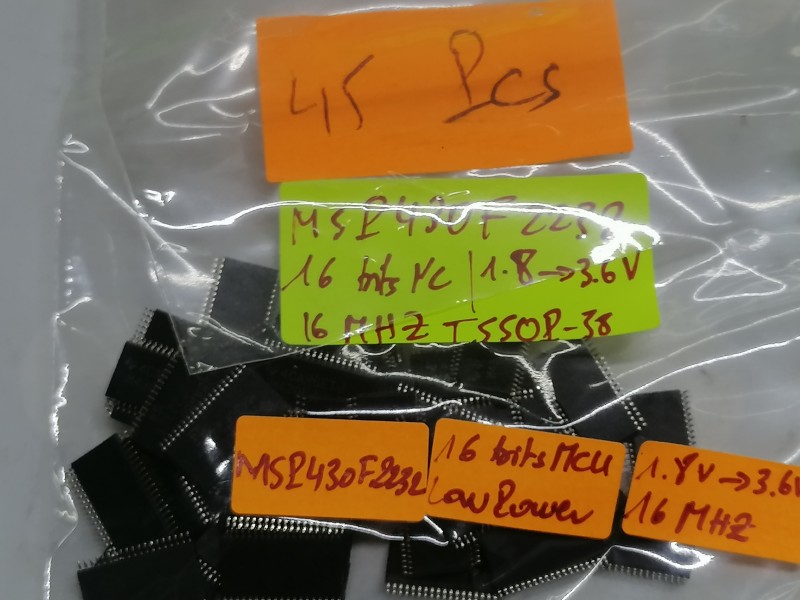 45 Pcs
MSP430F2232
16 bits MC | 1.8 → 3.6 V
16 MHZ TSSOP-38
MSP430F2232
16 bits MCU
Low Power
1.8V → 3.6V
16 MHZ